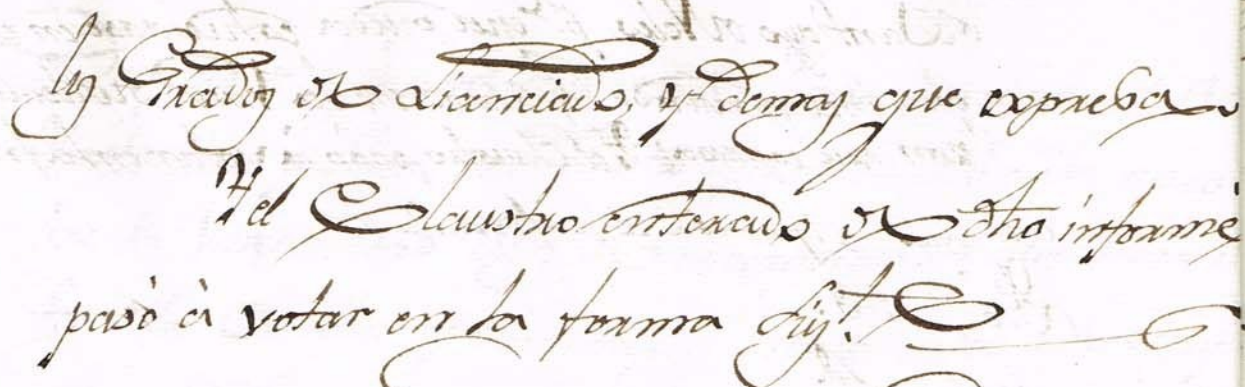 los Grados de Licenciado, y demas que expresa
Y el Claustro enterado de dho informe
pasó à votar en la forma sigt.e